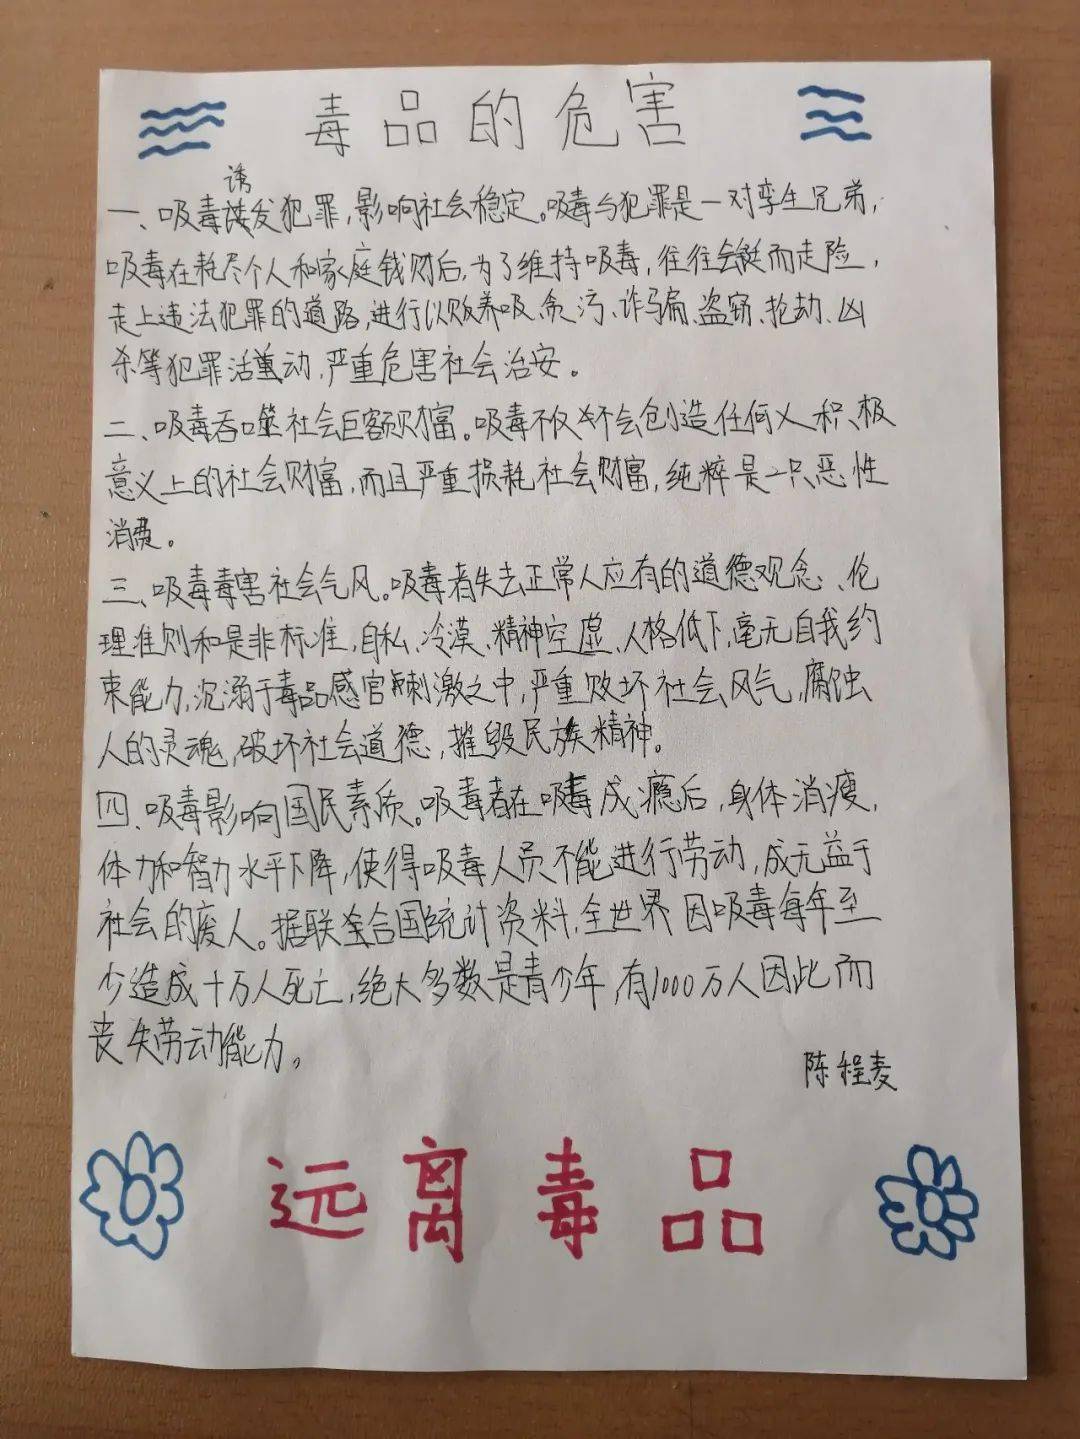 毒品的危害
诱
一、吸毒诱发犯罪,影响社会稳定。吸毒与犯罪是一对孪生兄弟,
吸毒在耗尽个人和家庭钱财后,为了维持吸毒,往往会铤而走险,
走上违法犯罪的道路,进行以贩养吸、贪污、诈骗、盗窃、抢劫、凶
杀等犯罪活动,严重危害社会治安。
二、吸毒吞噬社会巨额财富。吸毒不仅不会创造任何义积极
意义上的社会财富,而且严重损耗社会财富,纯粹是一只恶性
消费。
三、吸毒毒害社会气风。吸毒者失去正常人应有的道德观念、伦
理准则和是非标准,自私、冷漠、精神空虚、人格低下,毫无自我约
束能力,沉溺于毒品感官刺激之中,严重败坏社会风气,腐蚀
人的灵魂,破坏社会道德,摧毁民族精神。
四、吸毒影响国民素质。吸毒者在吸毒成瘾后,身体消瘦,
体力和智力水平下降,使得吸毒人员不能进行劳动,成无益于
社会的废人。据联合国统计资料,全世界因吸毒每年至
少造成十万人死亡,绝大多数是青少年,有1000万人因此而
丧失劳动能力。
陈程麦
远离毒品